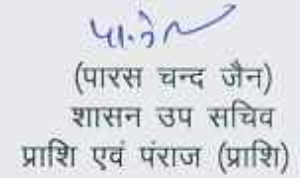 (पारस चन्द जैन)
शासन उप सचिव
प्राशि एवं पंराज (प्राशि)